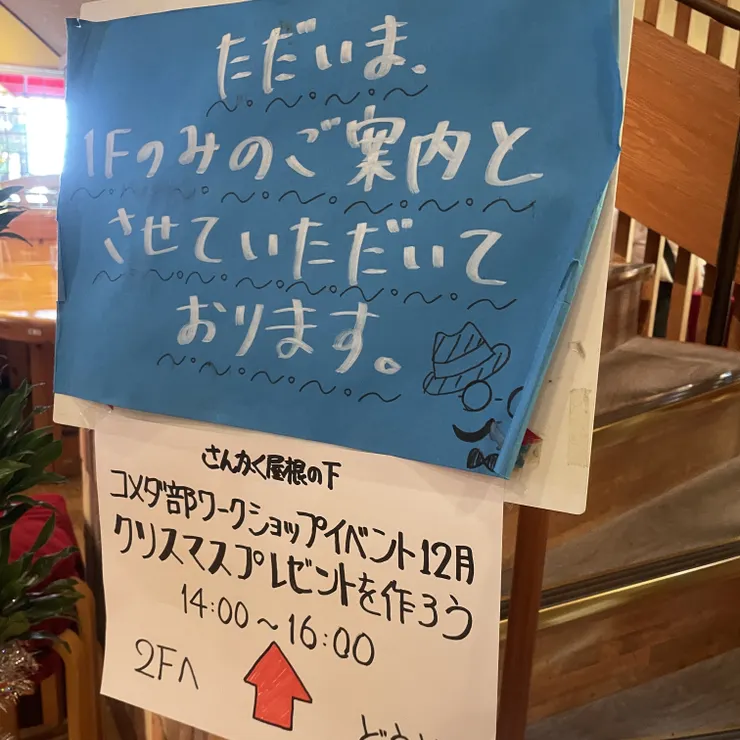 ただいま、
1Fのみのご案内と
させていただいて
おります。
さんかく屋根の下
コメダ部ワークショップイベント12月
クリスマスプレゼントを作ろう
14:00～16:00
2Fへ